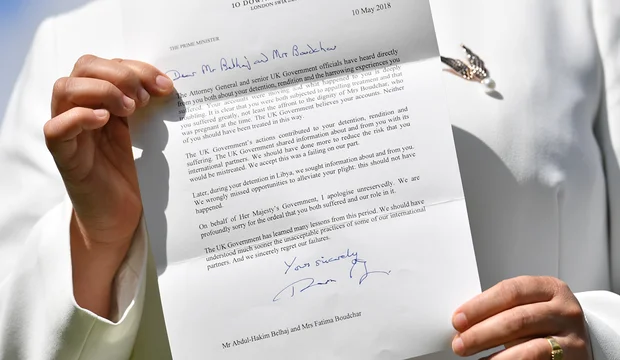 10 DOW
LONDON SW1A
10 May 2018
THE PRIME MINISTER
Dear Mr Belhaj and Mrs Boudchar
The Attorney General and senior UK Government officials have heard directly
from you both about your detention, rendition and the harrowing experiences you
suffered. Your accounts were moving and what happened to you is deeply
troubling. It is clear that you were both subjected to appalling treatment and that
you suffered greatly, not least the affront to the dignity of Mrs Boudchar, who
was pregnant at the time. The UK Government believes your accounts. Neither
of you should have been treated in this way.
The UK Government's actions contributed to your detention, rendition and
suffering. The UK Government shared information about you with its
international partners. We should have done more to reduce the risk that you
would be mistreated. We accept this was a failing on our part.
Later, during your detention in Libya, we sought information about and from you.
We wrongly missed opportunities to alleviate your plight: this should not have
happened.
On behalf of Her Majesty's Government, I apologise unreservedly. We are
profoundly sorry for the ordeal that you both suffered and our role in it.
The UK Government has learned many lessons from this period. We should have
understood much sooner the unacceptable practices of some of our international
partners. And we sincerely regret our failures.
Yours sincerely
Mr Abdul-Hakim Belhaj and Mrs Fatima Boudchar